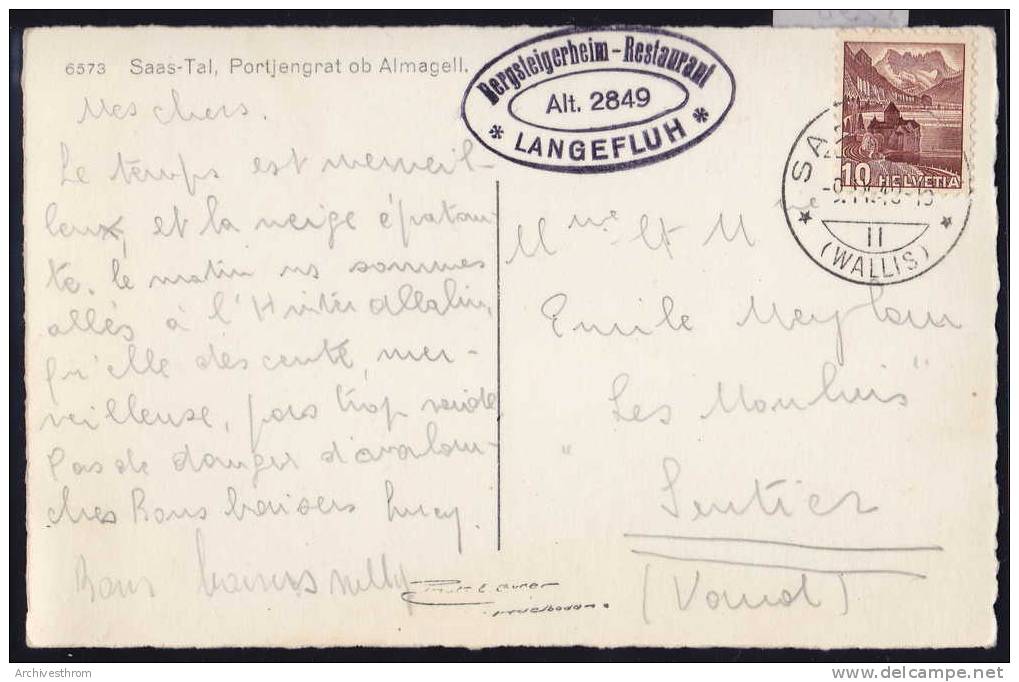 6573 Saas-Tal, Portjengrat ob Almagell.
Bergsteigerheim-Restaurant
Alt. 2849
* LANGEFLUH *
10 HELVETIA
SA
II
(WALLIS)
Mes chers.
Le temps est merveil-
leux, et la neige épatan-
te. le matin ns sommes
allés à l'Hinterallalin,
qu'elle descente, mer-
veilleuse, pas trop raide
pas de danger d'avalan-
ches Bons baisers Lucy.
Bons baisers Nelly
Mme et M
Emile Meylan
"Les Moulins"
Sentier
(Vaud)
Archivesthrom
www.delcampe.net